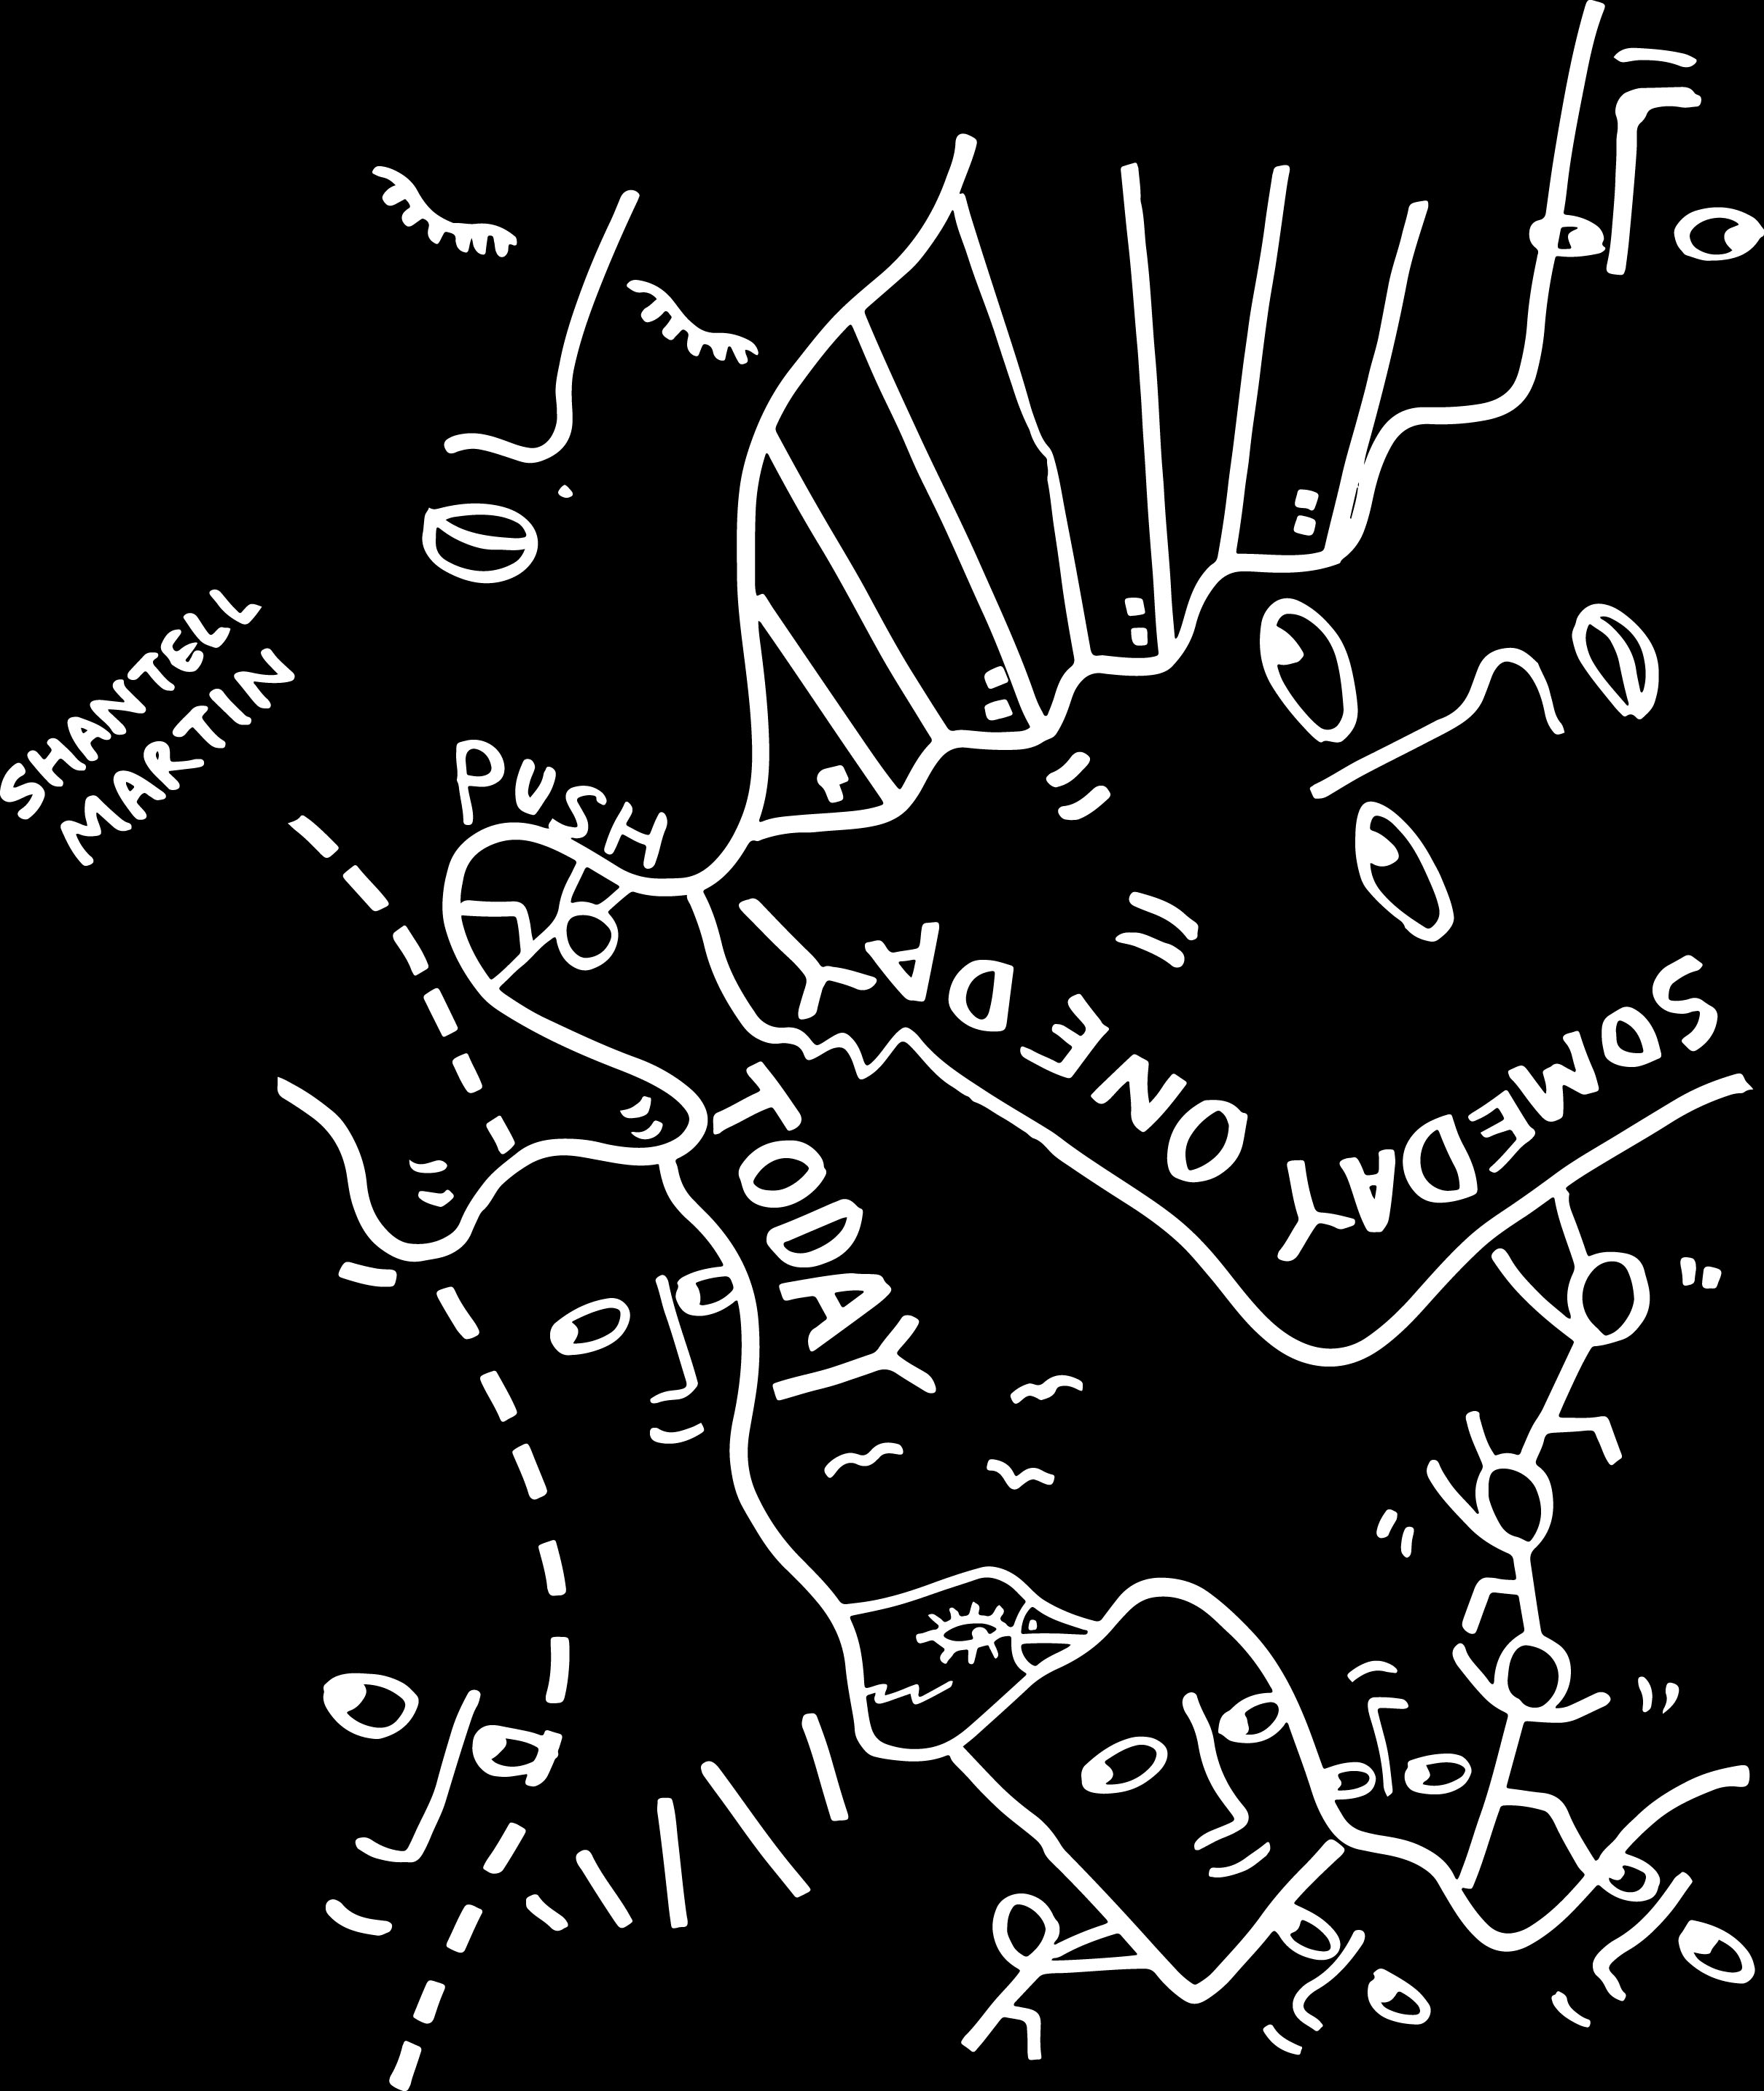 SHANTELL
MARTIN
PUSH
ONEDAY
SOMEDAY
TODAY